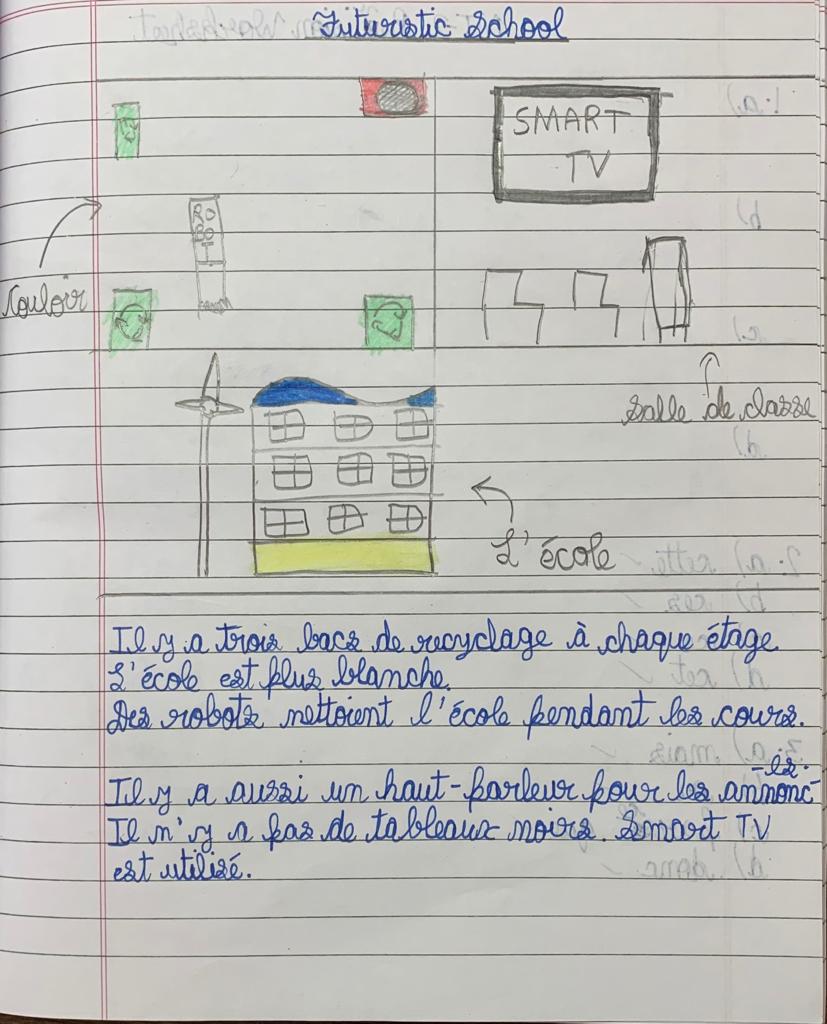 Futuristic School
SMART
TV
RO
BO
T
Couloir
Salle de classe
L'école
Il y a trois bacs de recyclage à chaque étage.
L'école est plus blanche.
Des robots nettoient l'école pendant les cours.
Il y a aussi un haut-parleur pour les annonc-
-es.
Il n'y a pas de tableaux noirs. Smart TV
est utilisé.